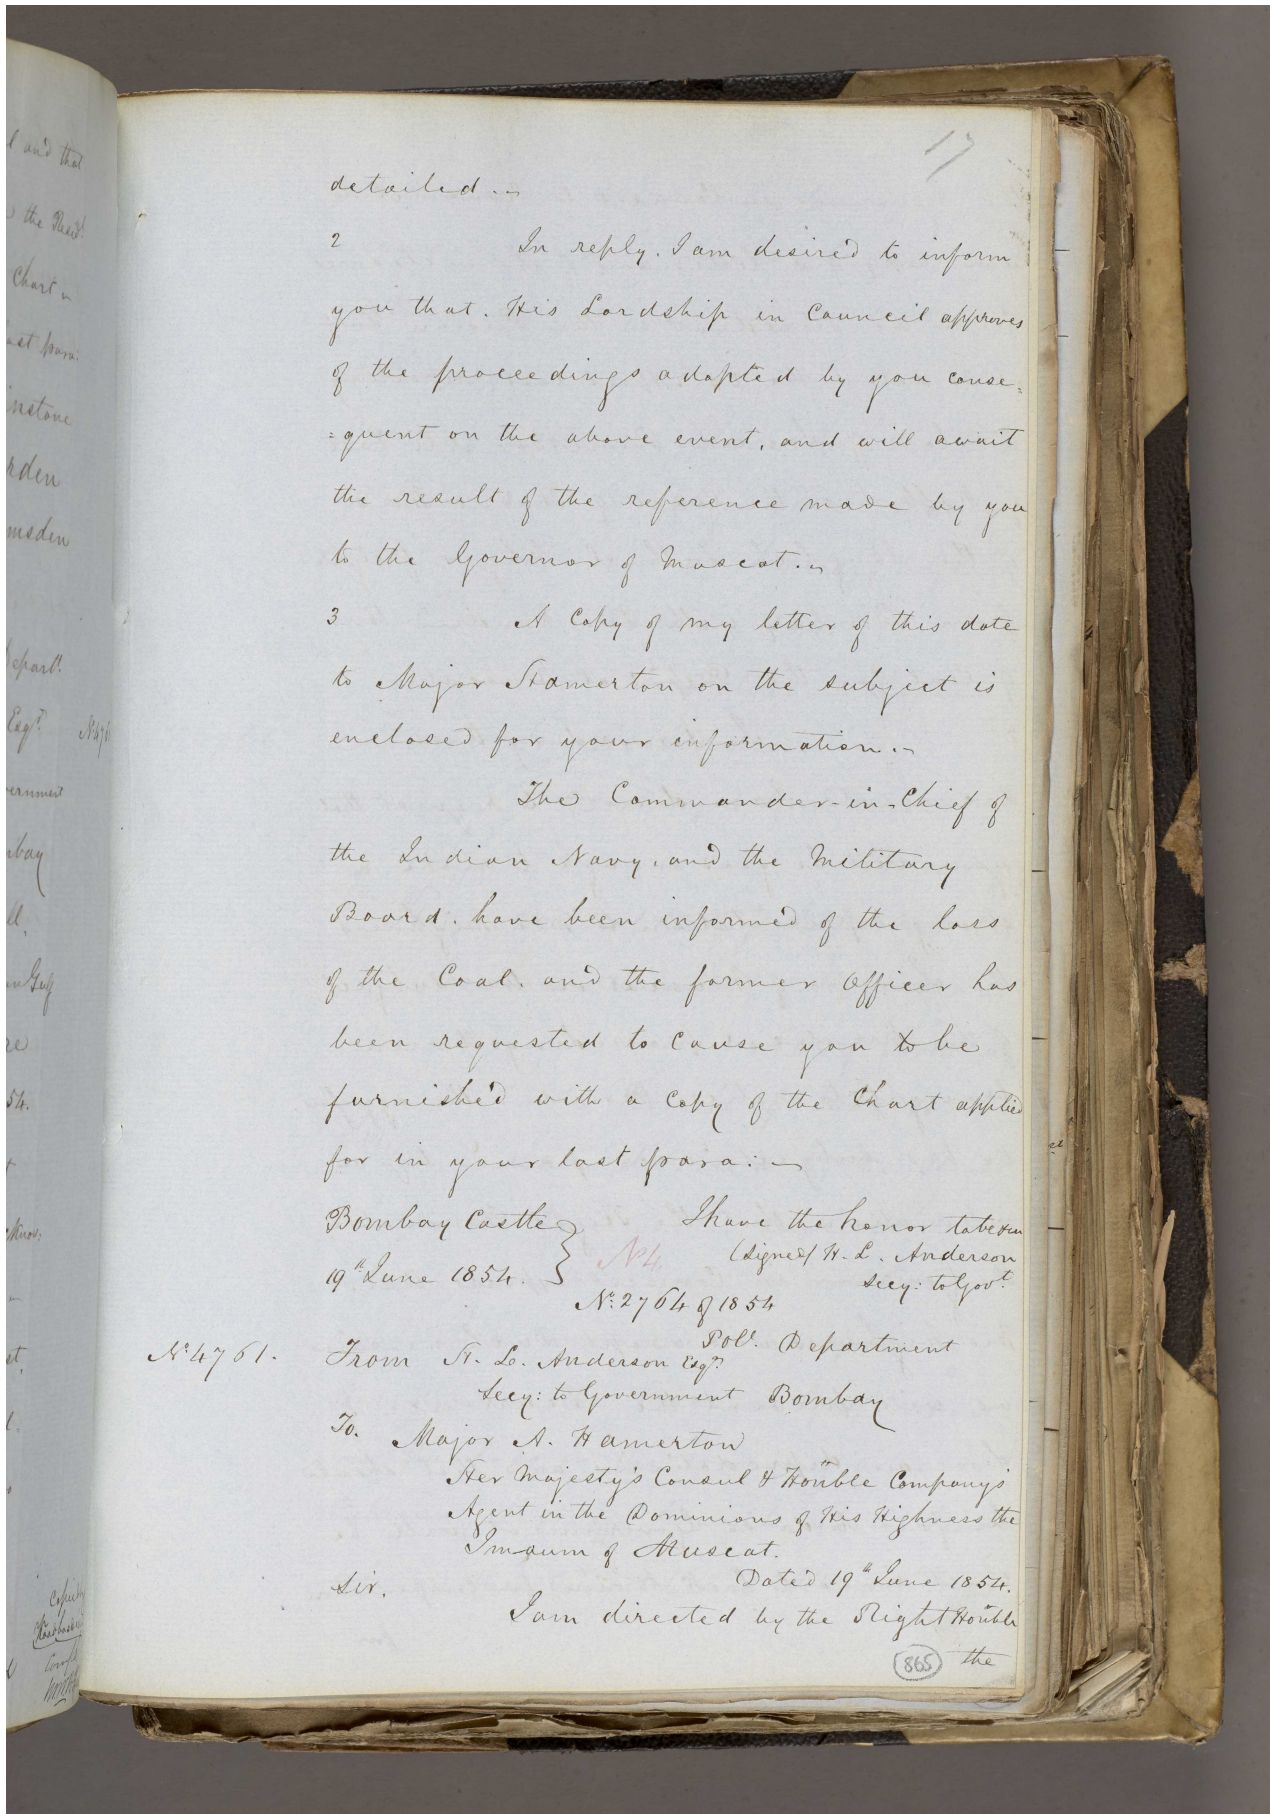 17
detailed.
2 In reply, I am desired to inform
you that, His Lordship in Council approves
of the proceedings adopted by you conse=
=quent on the above event, and will await
the result of the reference made by you
to the Governor of Muscat.
3 A Copy of my letter of this date
to Major Hamerton on the subject is
enclosed for your information.
The Commander-in-Chief of
the Indian Navy, and the Military
Board, have been informed of the loss
of the Coal, and the former Officer has
been requested to cause you to be
furnished with a Copy of the Chart applied
for in your last para:
Bombay Castle } I have the honor to be &ca
No 4 (Signed) H. L. Anderson
19th June 1854. Secy: to Govt.
No: 2764 of 1854
Poll. Department
No 4761. From H. L. Anderson Esqr.
Secy: to Government Bombay
To. Major A. Hamerton
Her Majesty's Consul & Honble Company's
Agent in the Dominions of His Highness the
Imaum of Muscat.
Dated 19th June 1854.
Sir,
I am directed by the Right Honble
865 the